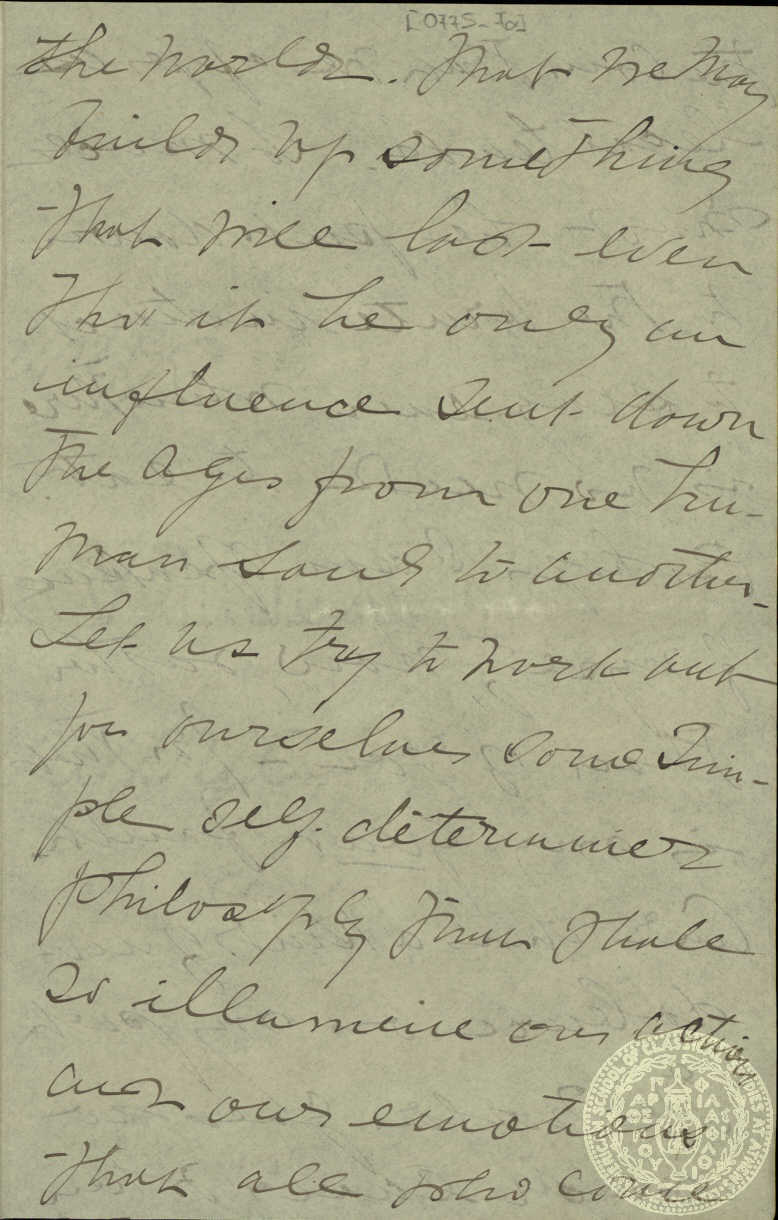 [0775-Ia]
the world. That we may
build up something
that will last even
tho' it be only an
influence sent down
the ages from one hu-
man soul to another.
Let us try to work out
for ourselves some sim-
ple self-determined
philosophy that shall
so illumine our action
and our emotions
that all who come
AMERICAN SCHOOL OF CLASSICAL STUDIES AT ATHENS